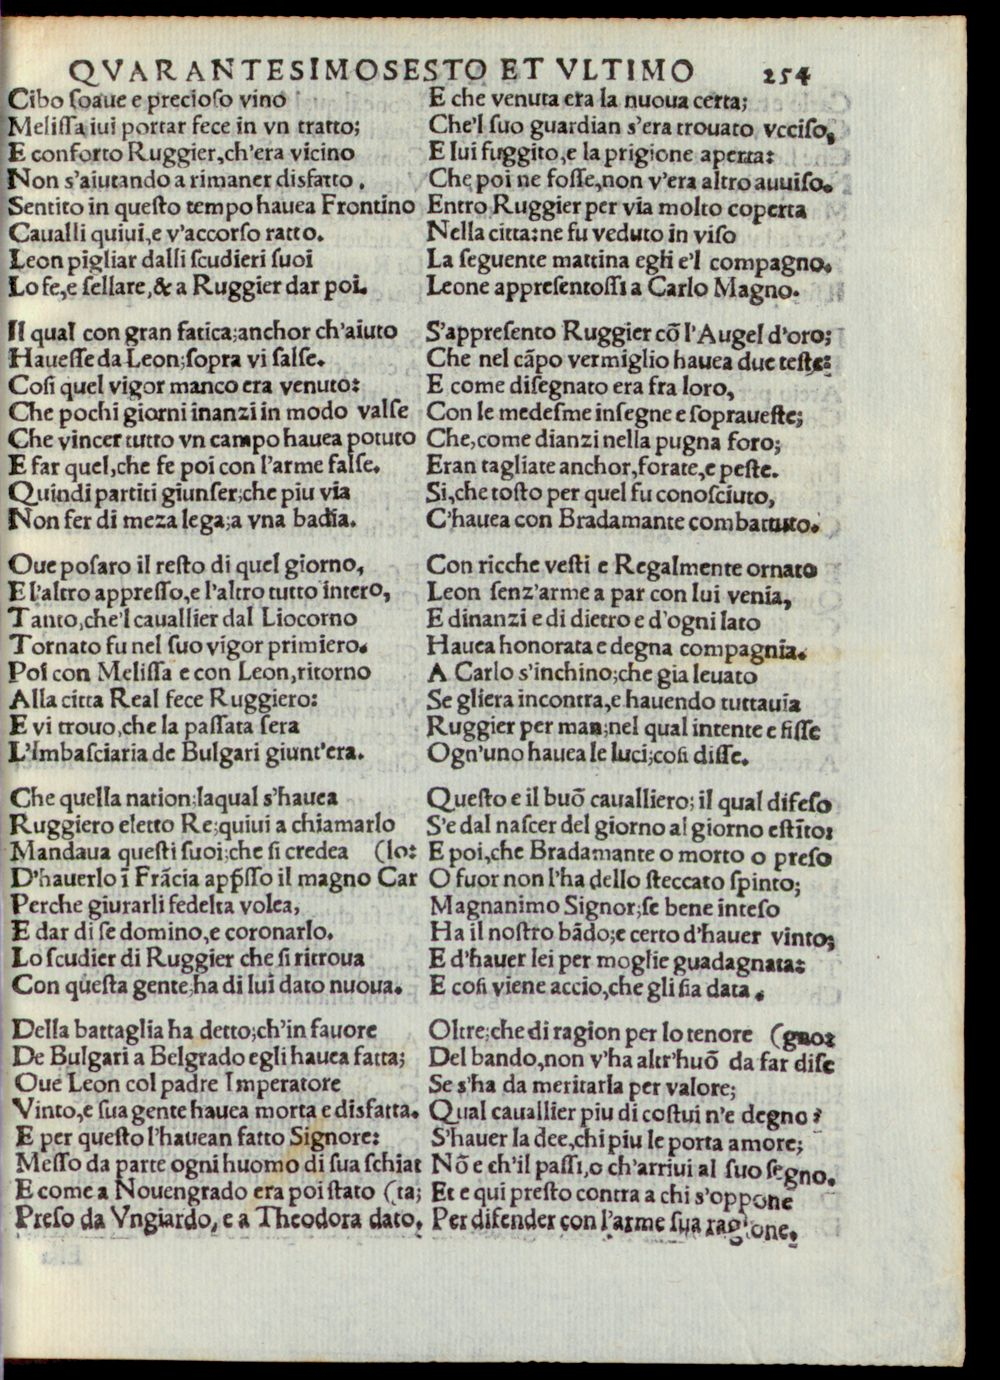 QVARANTESIMOSESTO ET VLTIMO 254
Cibo ſoaue e precioſo vino
Meliſſa iui portar fece in vn tratto;
E conforto Ruggier, ch'era vicino
Non s'aiutando a rimaner disfatto.
Sentito in queſto tempo hauea Frontino
Caualli quiui, e v'accorſo ratto.
Leon pigliar dalli ſcudieri ſuoi
Lo fe, e ſellare, & a Ruggier dar poi.
Il qual con gran fatica; anchor ch'aiuto
Haueſſe da Leon; ſopra vi ſalſe.
Coſi quel vigor manco era venuto:
Che pochi giorni inanzi in modo valſe
Che vincer tutto vn campo hauea potuto
E far quel, che fe poi con l'arme falſe.
Quindi partiti giunſer; che piu via
Non fer di meza lega; a vna badia.
Oue poſaro il reſto di quel giorno,
E l'altro appreſſo, e l'altro tutto intero,
Tanto, che'l cauallier dal Liocorno
Tornato fu nel ſuo vigor primiero.
Poi con Meliſſa e con Leon, ritorno
Alla citta Real fece Ruggiero:
E vi trouo, che la paſſata ſera
L'Imbaſciaria de Bulgari giunt'era.
Che quella nation; laqual s'hauea
Ruggiero eletto Re; quiui a chiamarlo
Mandaua queſti ſuoi; che ſi credea (lo:
D'hauerlo ĩ Frãcia app̃ſſo il magno Car
Perche giurarli fedelta volea,
E dar di ſe domino, e coronarlo.
Lo ſcudier di Ruggier che ſi ritroua
Con queſta gente; ha di lui dato nuoua.
Della battaglia ha detto; ch'in fauore
De Bulgari a Belgrado egli hauea fatta;
Oue Leon col padre Imperatore
Vinto, e ſua gente hauea morta e disfatta.
E per queſto l'hauean fatto Signore:
Meſſo da parte ogni huomo di ſua ſchiat
E come a Nouengrado era poi ſtato (ta;
Preſo da Vngiardo, e a Theodora dato.
E che venuta era la nuoua certa;
Che'l ſuo guardian s'era trouato vcciſo,
E lui fuggito, e la prigione aperta:
Che poi ne foſſe, non v'era altro auuiſo.
Entro Ruggier per via molto coperta
Nella citta: ne fu veduto in viſo
La ſeguente mattina egli e'l compagno.
Leone appreſentoſſi a Carlo Magno.
S'appreſento Ruggier cõ l'Augel d'oro;
Che nel cãpo vermiglio hauea due teſte:
E come diſegnato era fra loro,
Con le medeſme inſegne e ſoprauеſte;
Che, come dianzi nella pugna foro;
Eran tagliate anchor, forate, e peſte.
Si, che toſto per quel fu conoſciuto,
C'hauea con Bradamante combattuto.
Con ricche veſti e Regalmente ornato
Leon ſenz'arme a par con lui venia,
E dinanzi e di dietro e d'ogni lato
Hauea honorata e degna compagnia.
A Carlo s'inchino; che gia leuato
Se gliera incontra, e hauendo tuttauia
Ruggier per man; nel qual intente e fiſſe
Ogn'uno hauea le luci; coſi diſſe.
Queſto e il buõ caualliero; il qual difeſo
S'e dal naſcer del giorno al giorno eſtĩto:
E poi, che Bradamante o morto o preſo
O fuor non l'ha dello ſteccato ſpinto;
Magnanimo Signor; ſe bene inteſo
Ha il noſtro bãdo; e certo d'hauer vinto;
E d'hauer lei per moglie guadagnata:
E coſi viene accio, che gli ſia data.
Oltre; che di ragion per lo tenore (gno:
Del bando, non v'ha altr'huõ da far diſe
Se s'ha da meritarla per valore;
Qual cauallier piu di coſtui n'e degno?
S'hauer la dee, chi piu le porta amore;
Nõ e ch'il paſſi, o ch'arriui al ſuo ſegno.
Et e qui preſto contra a chi s'oppone
Per difender con l'arme ſua ragione.